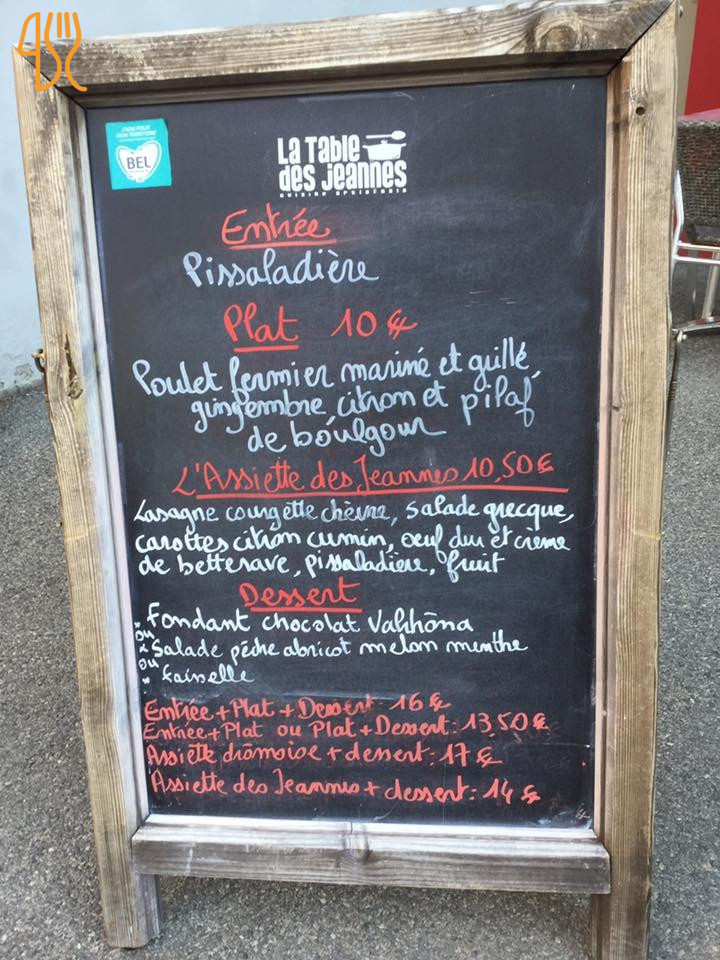 J'AGIS POUR
MON TERRITOIRE
BEL
La Table
des Jeannes
Entrée
Pissaladière
Plat 10 €
Poulet fermier mariné et grillé,
gingembre, citron et pilaf
de boulgour
L'Assiette des Jeannes 10,50€
Lasagne courgette chèvre, salade grecque,
carottes citron cumin, oeuf dur et crème
de betterave, pissaladière, fruit
Dessert
* Fondant chocolat Valrhôna
ou
* Salade pêche abricot melon menthe
ou
* faisselle
Entrée+Plat+Dessert: 16 €
Entrée+Plat ou Plat+Dessert: 13,50 €
Assiette drômoise + dessert: 17 €
Assiette des Jeannes + dessert: 14 €